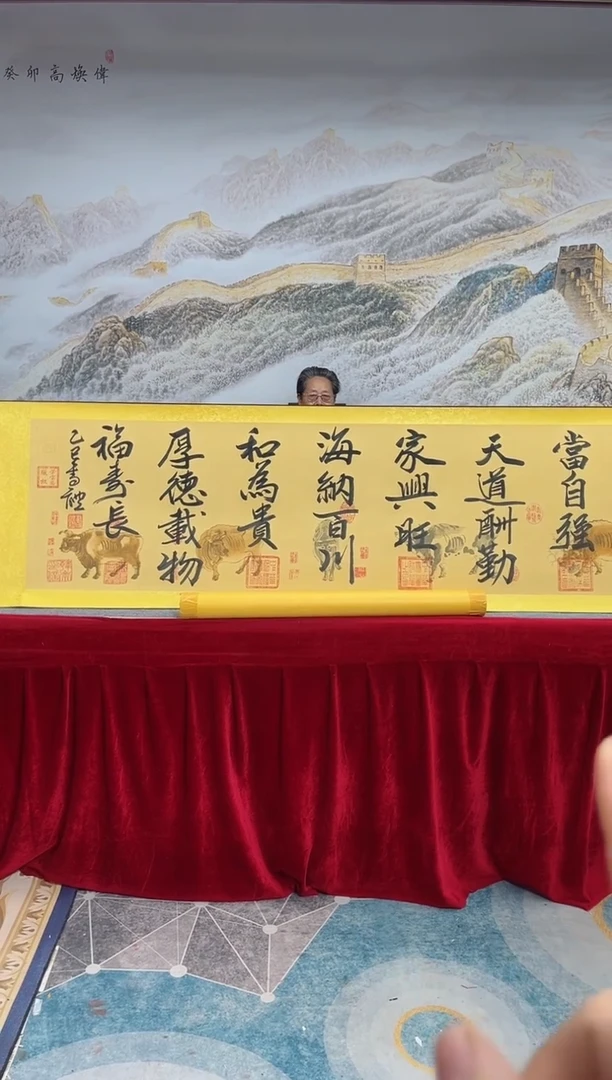 當自強
天道酬勤
家興旺
海納百川
和為貴
厚德載物
福壽長
乙巳書
癸卯高煥偉